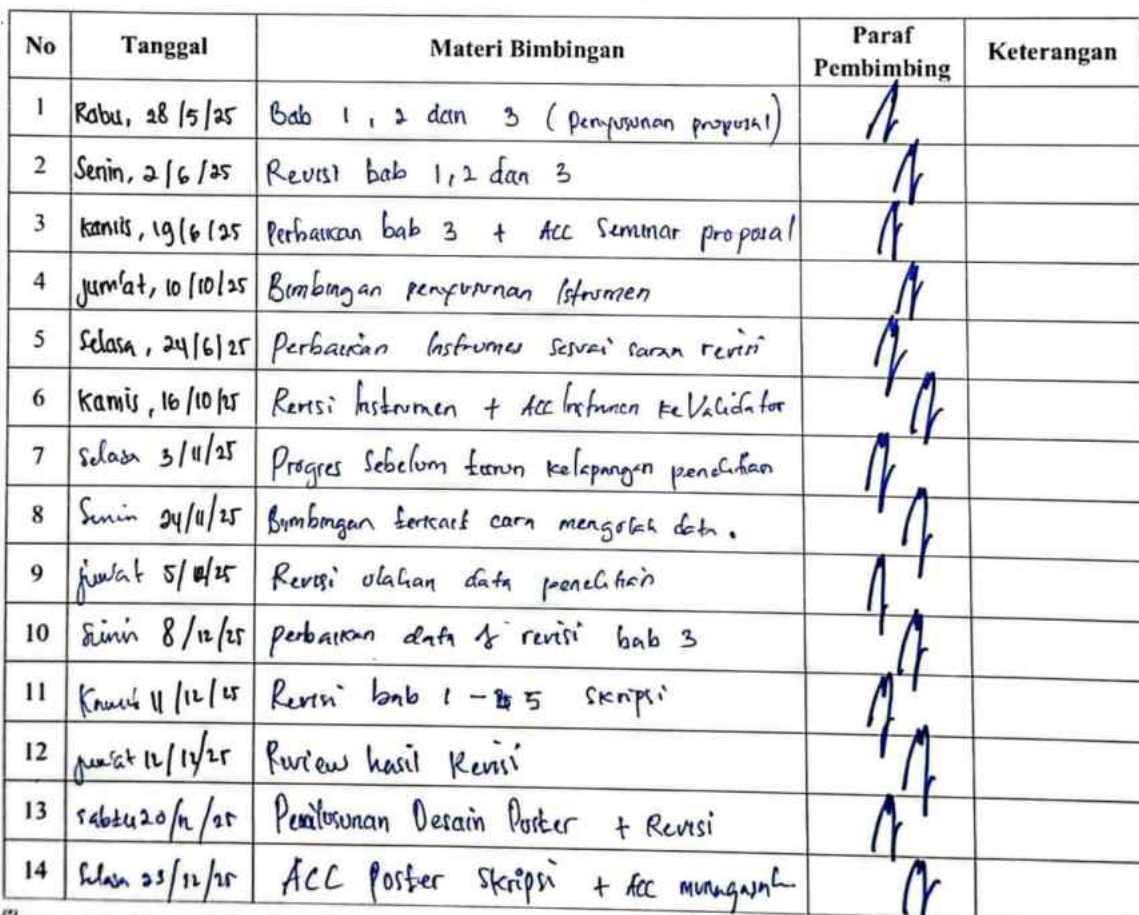 No Tanggal Materi Bimbingan Paraf Pembimbing Keterangan
1 Rabu, 28/5/25 Bab 1, 2 dan 3 (Penyusunan proposal)
2 Senin, 2/6/25 Revisi bab 1, 2 dan 3
3 Kamis, 19/6/25 Perbaikan bab 3 + ACC Seminar proposal
4 Jum'at, 10/10/25 Bimbingan penyusunan Istrumen
5 Selasa, 24/6/25 Perbaikan Instrumen sesuai saran revisi
6 Kamis, 16/10/25 Revisi Instrumen + ACC Instrumen ke Validator
7 Selasa 3/11/25 Progres Sebelum turun kelapangan penelitian
8 Senin 24/11/25 Bimbingan terkait cara mengolah data.
9 jum'at 5/12/25 Revisi olahan data penelitian
10 Senin 8/12/25 perbaikan data & revisi bab 3
11 Kamis 11/12/25 Revisi bab 1 - 5 skripsi
12 jum'at 12/12/25 Review hasil Revisi
13 sabtu 20/12/25 Desain Poster + Revisi
14 Selasa 23/12/25 ACC Poster Skripsi + Acc munaqasah